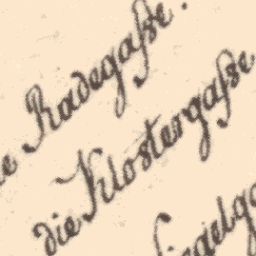 Radegasse.
die Klostergasse